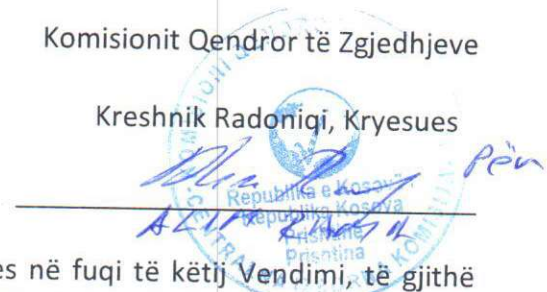 Komisionit Qendror të Zgjedhjeve
Kreshnik Radoniqi, Kryesues
Për
Republika e Kosovës
Republika Kosova
Prishtinë
Prishtina
es në fuqi të këtij Vendimi, të gjithë